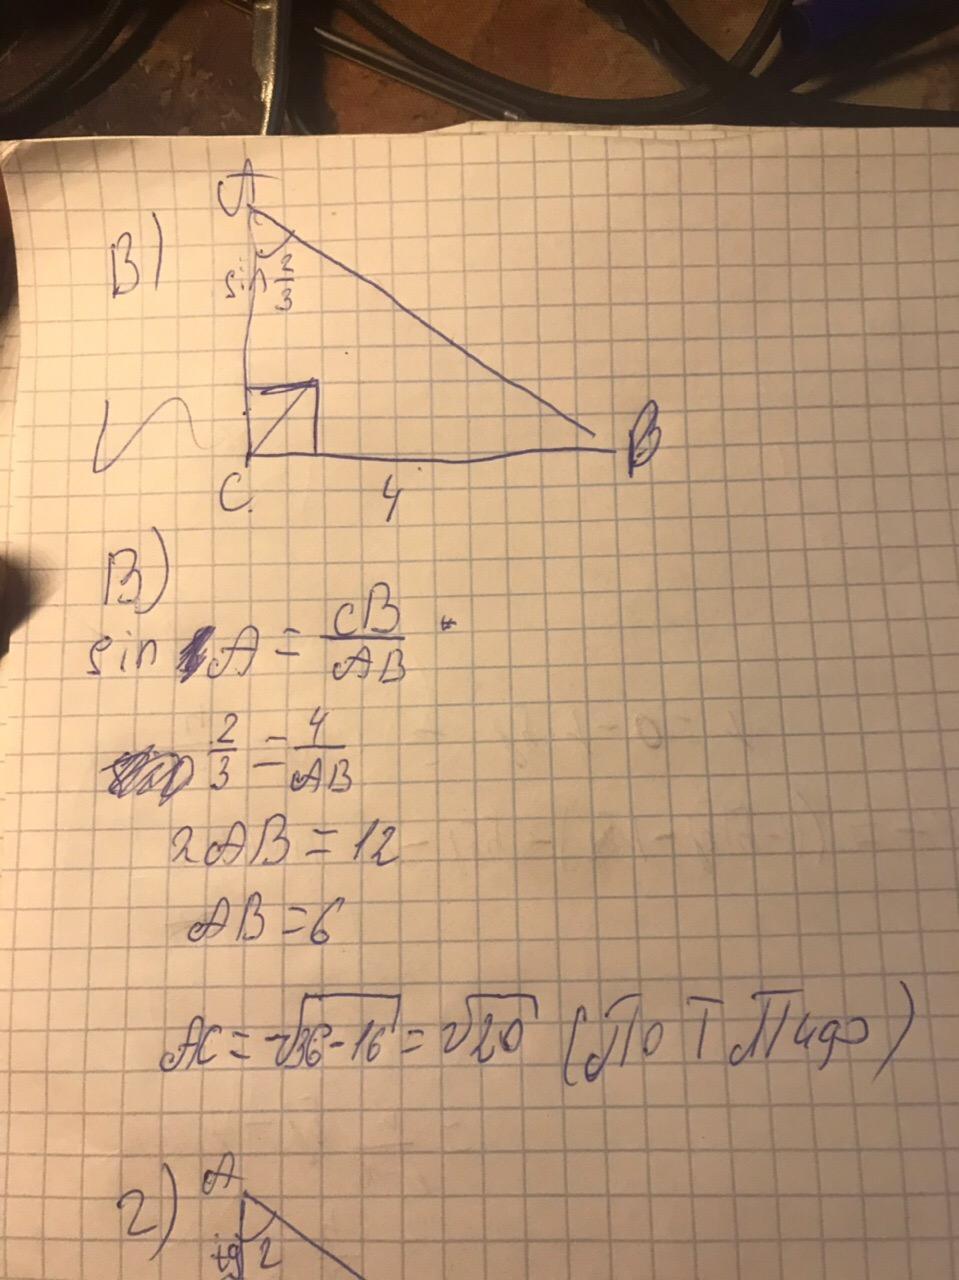 A
В)
sin 2/3
B
C
4
В)
sin A = CB/AB
2/3 = 4/AB
2AB = 12
AB = 6
AC = √36-16 = √20 (По Т Пифо)
2) A
tg 2